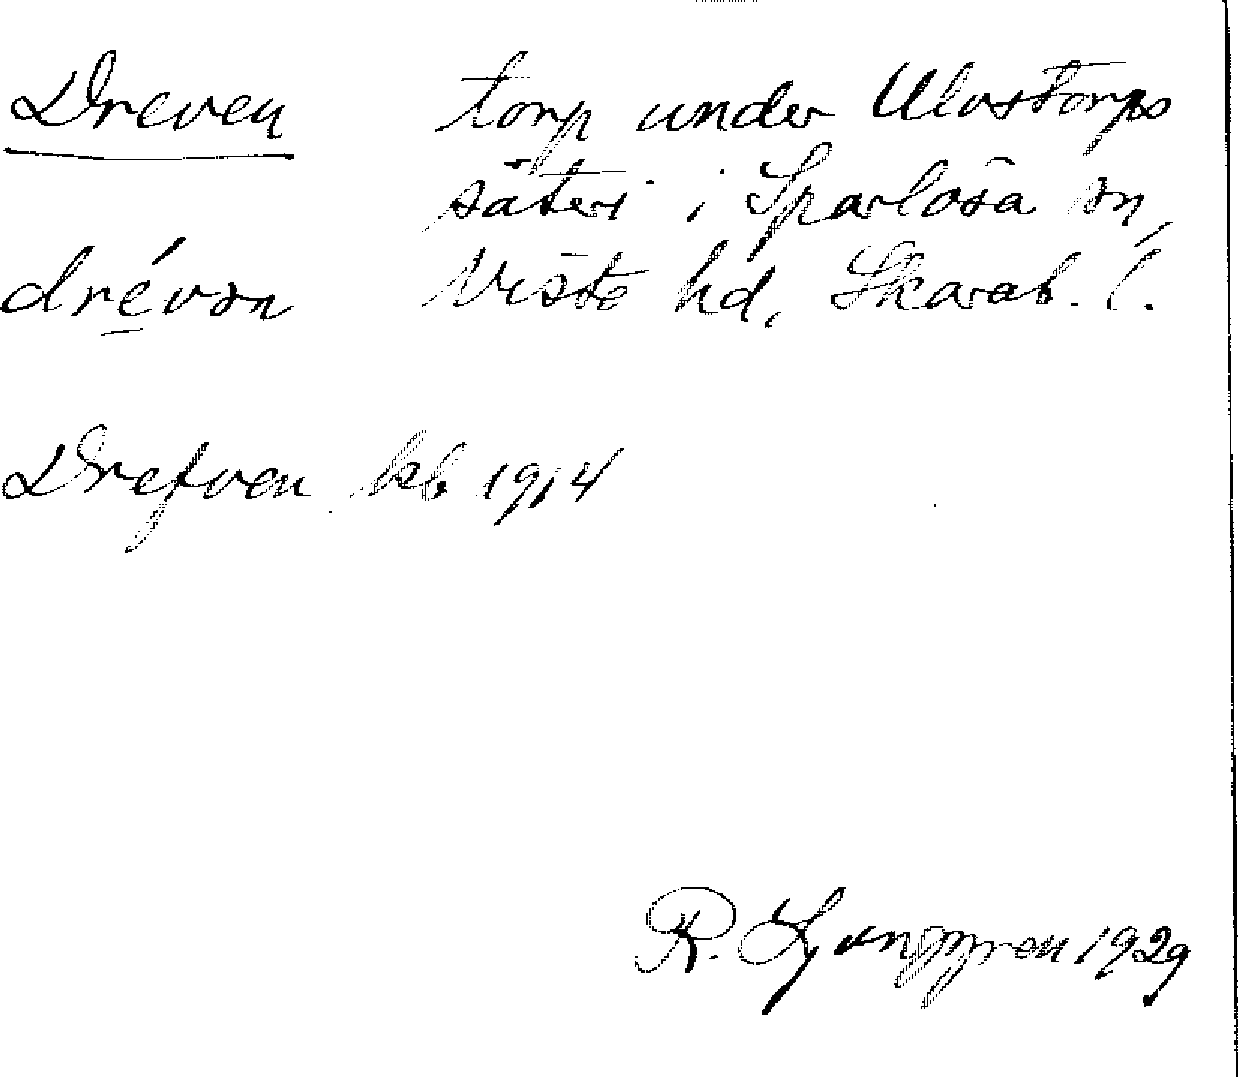 Dreven torp under Ulvstorps
säteri i Sparlösa sn,
drévən Viste hd, Skarab. l.
Drefven kb 1914
R. Ljunggren 1929